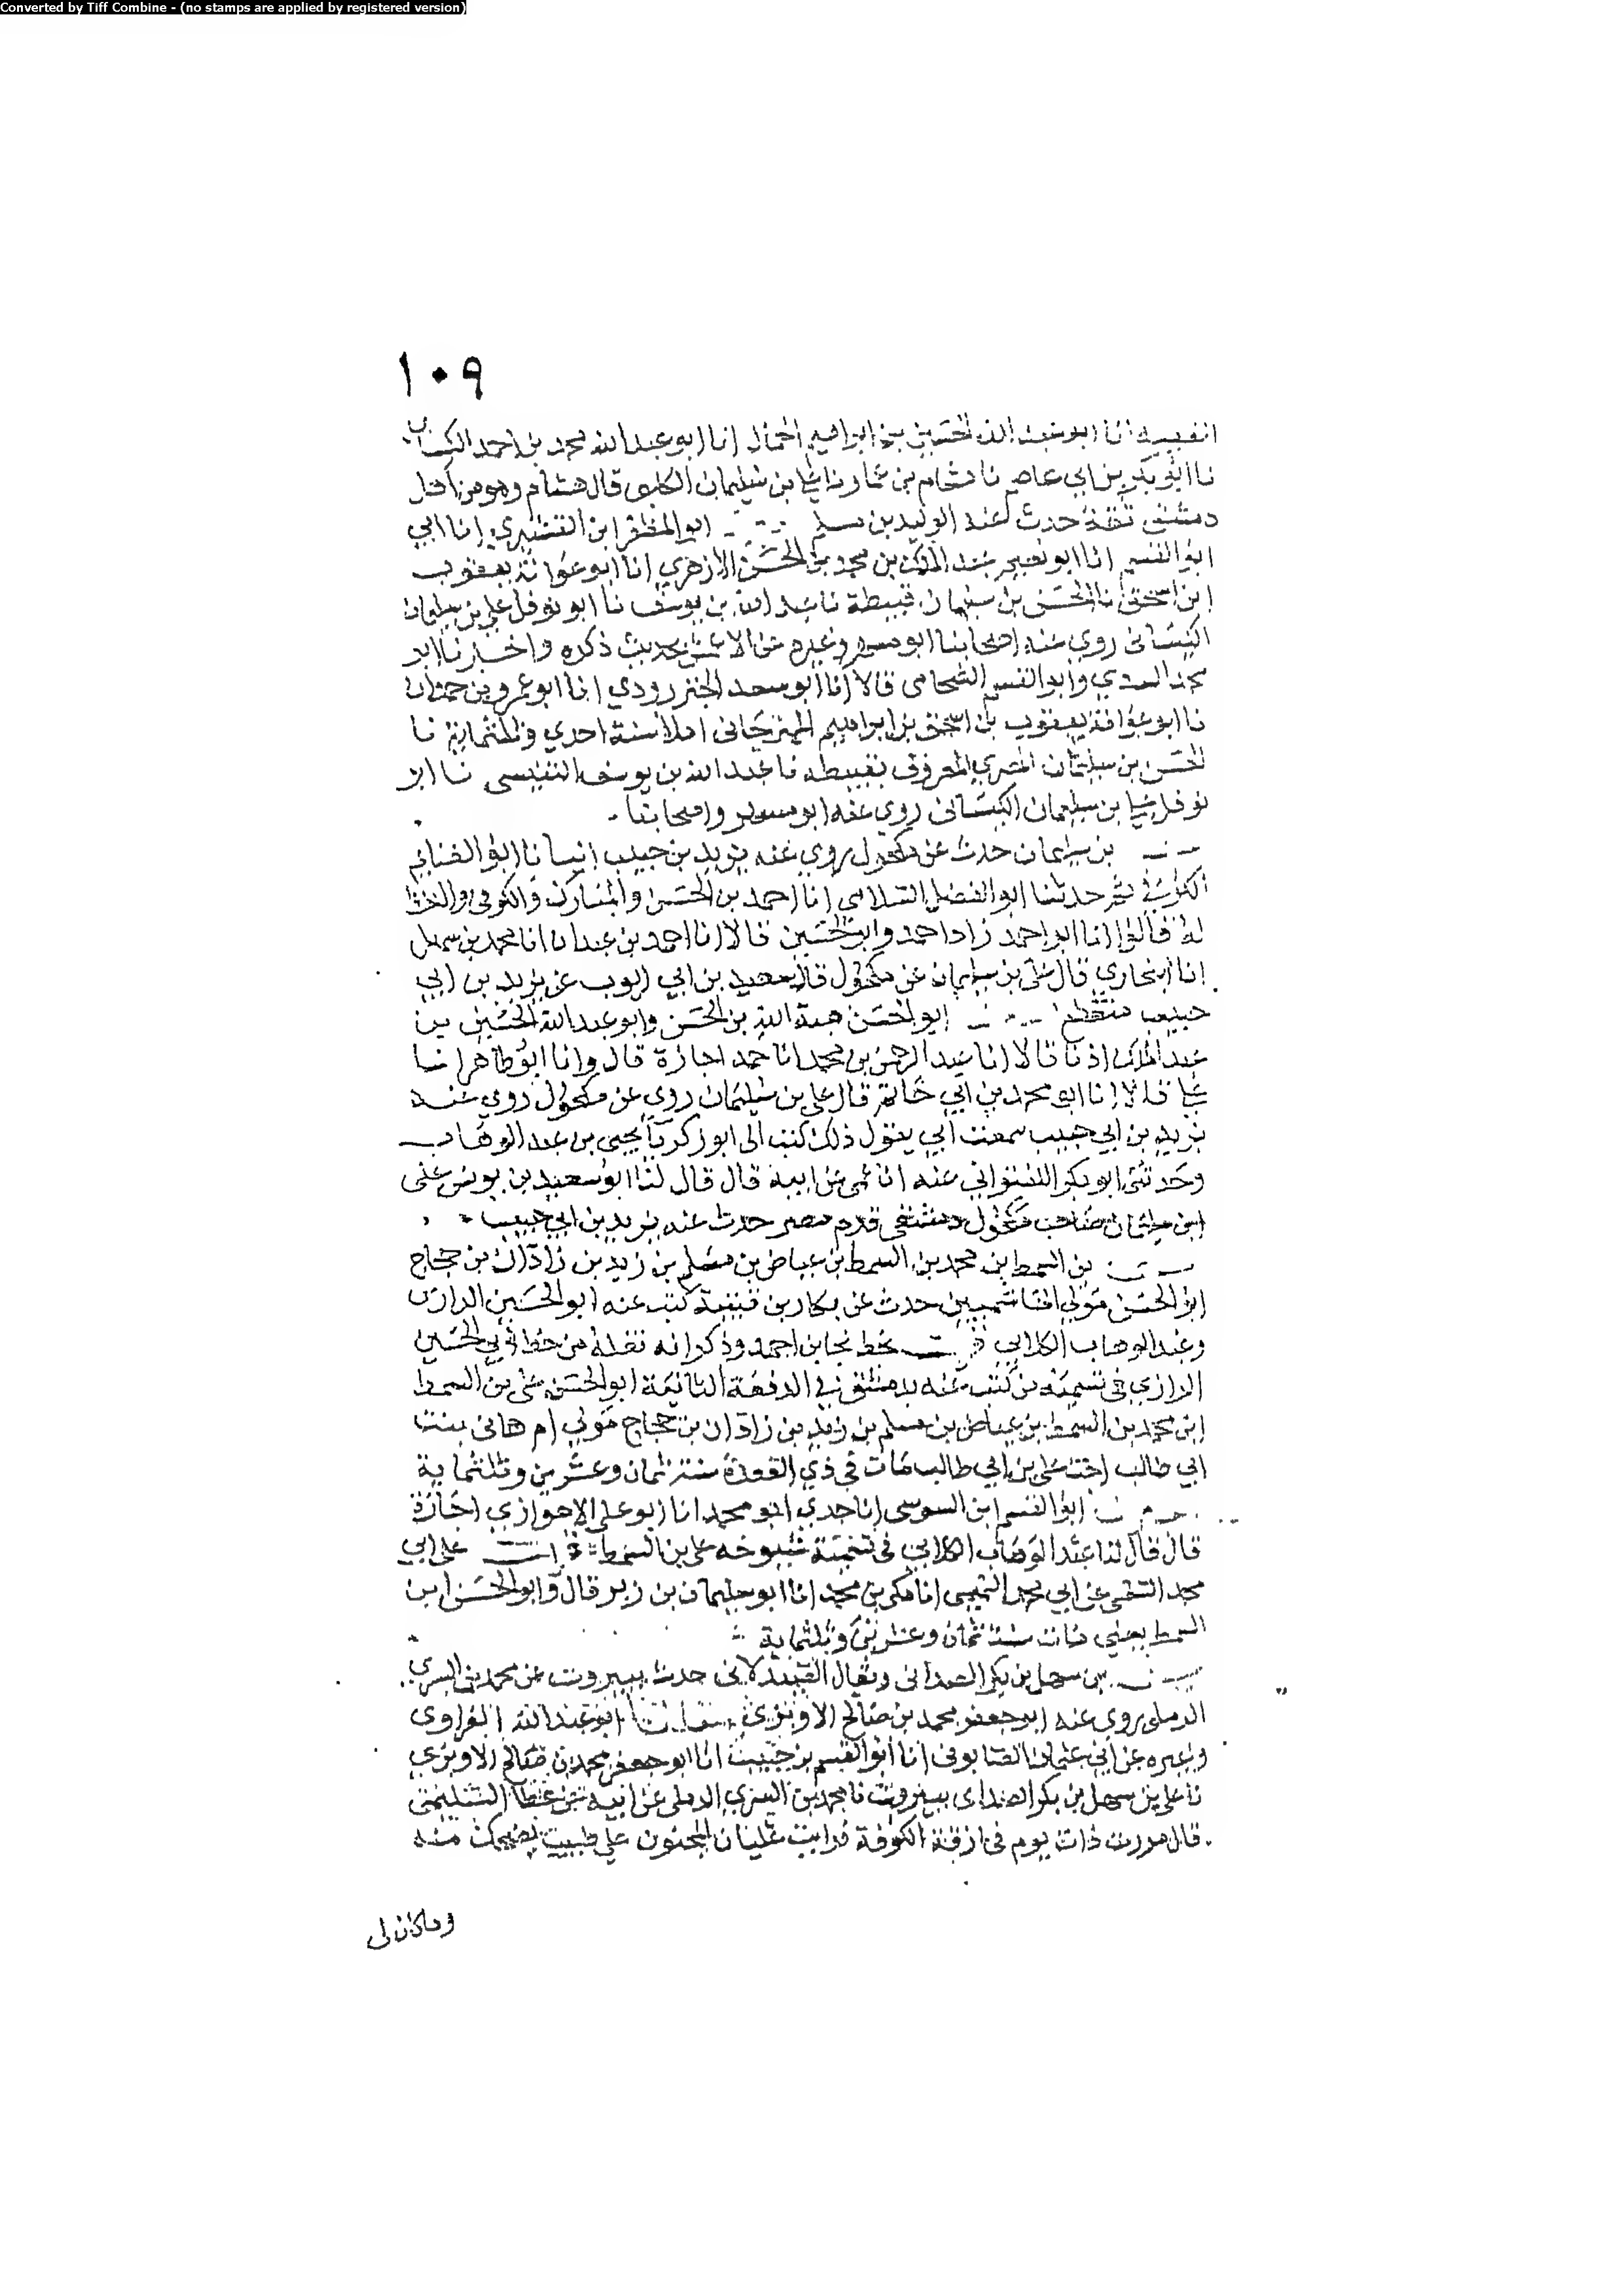 Converted by Tiff Combine - (no stamps are applied by registered version)
١٠٩
انا ابو عبد الله الحسين بن ابراهيم الجمال انا ابو عبد الله محمد بن احمد
نا ابو بكر بن ابي عاصم نا هشام بن عمار نا علي بن سليمان الكلبي قال هشام وهو من اهل
دمشق ثقة حدث عنه الوليد بن مسلم ابو المظفر ابن القشيري انا ابي
ابو القسم انا ابو نعيم عبد الملك بن محمد بن الحسن الازهري انا ابو عوانة يعقوب
ابن اسحق نا الحسن بن سليمان قبيطة نا عبد الله بن يوسف نا ابو نوفل علي بن سليمان
الكيساني روى عنه اصحابنا ابو مسهر وغيره عن الاعمش بحديث ذكره واخبرنا ابو
محمد السيدي وابو القسم الشحامي قالا انا ابو سعد الجنزرودي انا ابو عمرو بن حمدان
نا ابو عوانة يعقوب بن اسحق بن ابراهيم المهرجاني املا سنة احدي وثلثماية نا
الحسن بن سليمان المصري المعروف بقبيطه نا عبد الله بن يوسف التنيسي نا ابو
نوفل علي بن سليمان الكيساني روى عنه ابو مسهر واصحابنا
بن سليمان حدث عن مكحول روى عنه يزيد بن حبيب انبانا ابو الغنائم
ثم حدثنا ابو الفضل السلامي انا احمد بن الحسن والمبارك والكوفي واللفظ
له قالوا انا ابو احمد زاد احمد وابو الحسين قالا انا احمد بن عبدان انا محمد بن سهل
انا البخاري قال علي بن سليمان عن مكحول قال سعيد بن ابي ايوب عن يزيد بن ابي
حبيب منقطع ابو الحسن هبة الله بن الحسن وابو عبد الله الحسين بن
عبد الملك اذنا قالا انا عبد الرحمن بن محمد انا حمد اجازة قال وانا ابو طاهر انا
علي قالا انا ابو محمد بن ابي حاتم قال علي بن سليمان روى عن مكحول روى عنه
يزيد بن ابي حبيب سمعت ابي يقول ذلك كتب الى ابو زكريا يحيى بن عبد الوهاب
وحدثني ابو بكر اللفتواني عنه انا عمي عن ابيه قال قال لنا ابو سعيد بن يونس علي
ابن سليمان صاحب مكحول دمشقي قدم مصر حدث عنه يزيد بن ابي حبيب
بن السمط بن محمد بن السمط بن عياض بن مسلم بن زيد بن زاذان بن حجاج
ابو الحسن مولى الهاشميين حدث عن بكار بن قتيبة كتب عنه ابو الحسين الرازي
وعبد الوهاب الكلابي بخط نجا بن احمد وذكر انه نقله من خط ابي الحسين
الرازي في تسمية من كتب عنه بدمشق في الدفعة الثانية ابو الحسن علي بن السمط
ابن محمد بن السمط بن عياض بن مسلم بن زيد بن زاذان بن حجاج مولى ام هاني بنت
ابي طالب اخت علي بن ابي طالب مات في ذي القعدة سنة ثمان وعشرين وثلثماية
ابو القسم ابن السوسي انا جدي ابو محمد انا ابو علي الاهوازي اجازة
قال قال لنا عبد الوهاب الكلابي في تسمية شيوخه علي بن السمط قرات على ابي
محمد السلمي عن ابي محمد التميمي انا مكي بن محمد انا ابو سليمان بن زبر قال وابو الحسن ابن
السمط يعني مات سنة ثمان وعشرين وثلثماية
بن سهل بن بكر الصيداني ويقال حدث ببيروت عن محمد بن السري
الرملي روى عنه ابو جعفر محمد بن صالح الاوبري ابو عبد الله الفراوي
وغيره عن ابي عثمان الصابوني انا ابو القسم بن حبيب انا ابو جعفر محمد بن صالح الاوبري
نا علي بن سهل بن بكر الصيداني ببيروت نا محمد بن السري الرملي عن ابيه عن عطا السليمي
قال مررت ذات يوم في ازقة الكوفة فرايت عليان المجنون على طبيب يضحك منه
وما كان لي